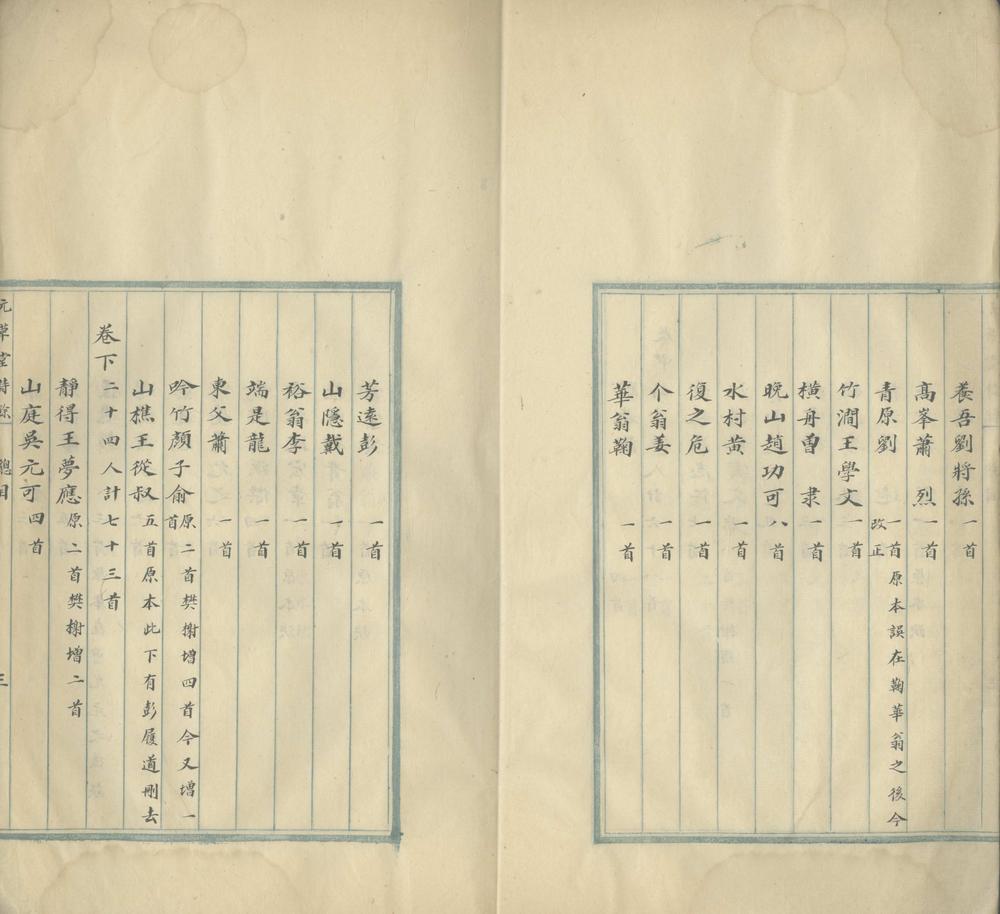 養吾劉將孫一首
高峯蕭　烈一首
青原劉　一首原本誤在鞠華翁之後今改正
竹澗王學文一首
橫舟曾　隶一首
晚山趙功可八首
水村黄　一首
復之危　一首
个翁姜　一首
華翁鞠　一首
芳遠彭　一首
山隱戴　一首
裕翁李　一首
端是龍　一首
東父蕭　一首
吟竹顏子俞原二首樊榭增四首今又增一首
山樵王從叔五首原本此下有彭履道刪去
卷下二十四人計七十三首
靜得王夢應原二首樊榭增二首
山庭吳元可四首
元草堂詩餘　總目　三